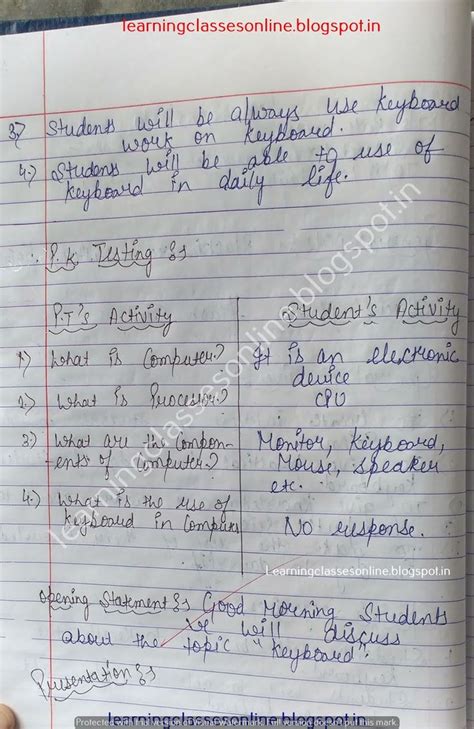 learningclassesonline.blogspot.in
3.) Students will be always use Keyboard
work on Keyboard.
4.) Students will be able to use of
Keyboard in daily life.
P.K Testing :-
P.T's Activity Student's Activity
1.) What is Computer? It is an electronic
device
2.) What is Processor? CPU
3.) What are the Compon- Monitor, Keyboard,
ents of Computer? Mouse, speaker
etc.
4.) What is the use of
Keyboard in Computer No response.
Learningclassesonline.blogspot.in
Opening Statement :- Good Morning Students
we will discuss
about the topic "Keyboard".
Presentation :-
learningclassesonline.blogspot.in
learningclassesonline.blogspot.in